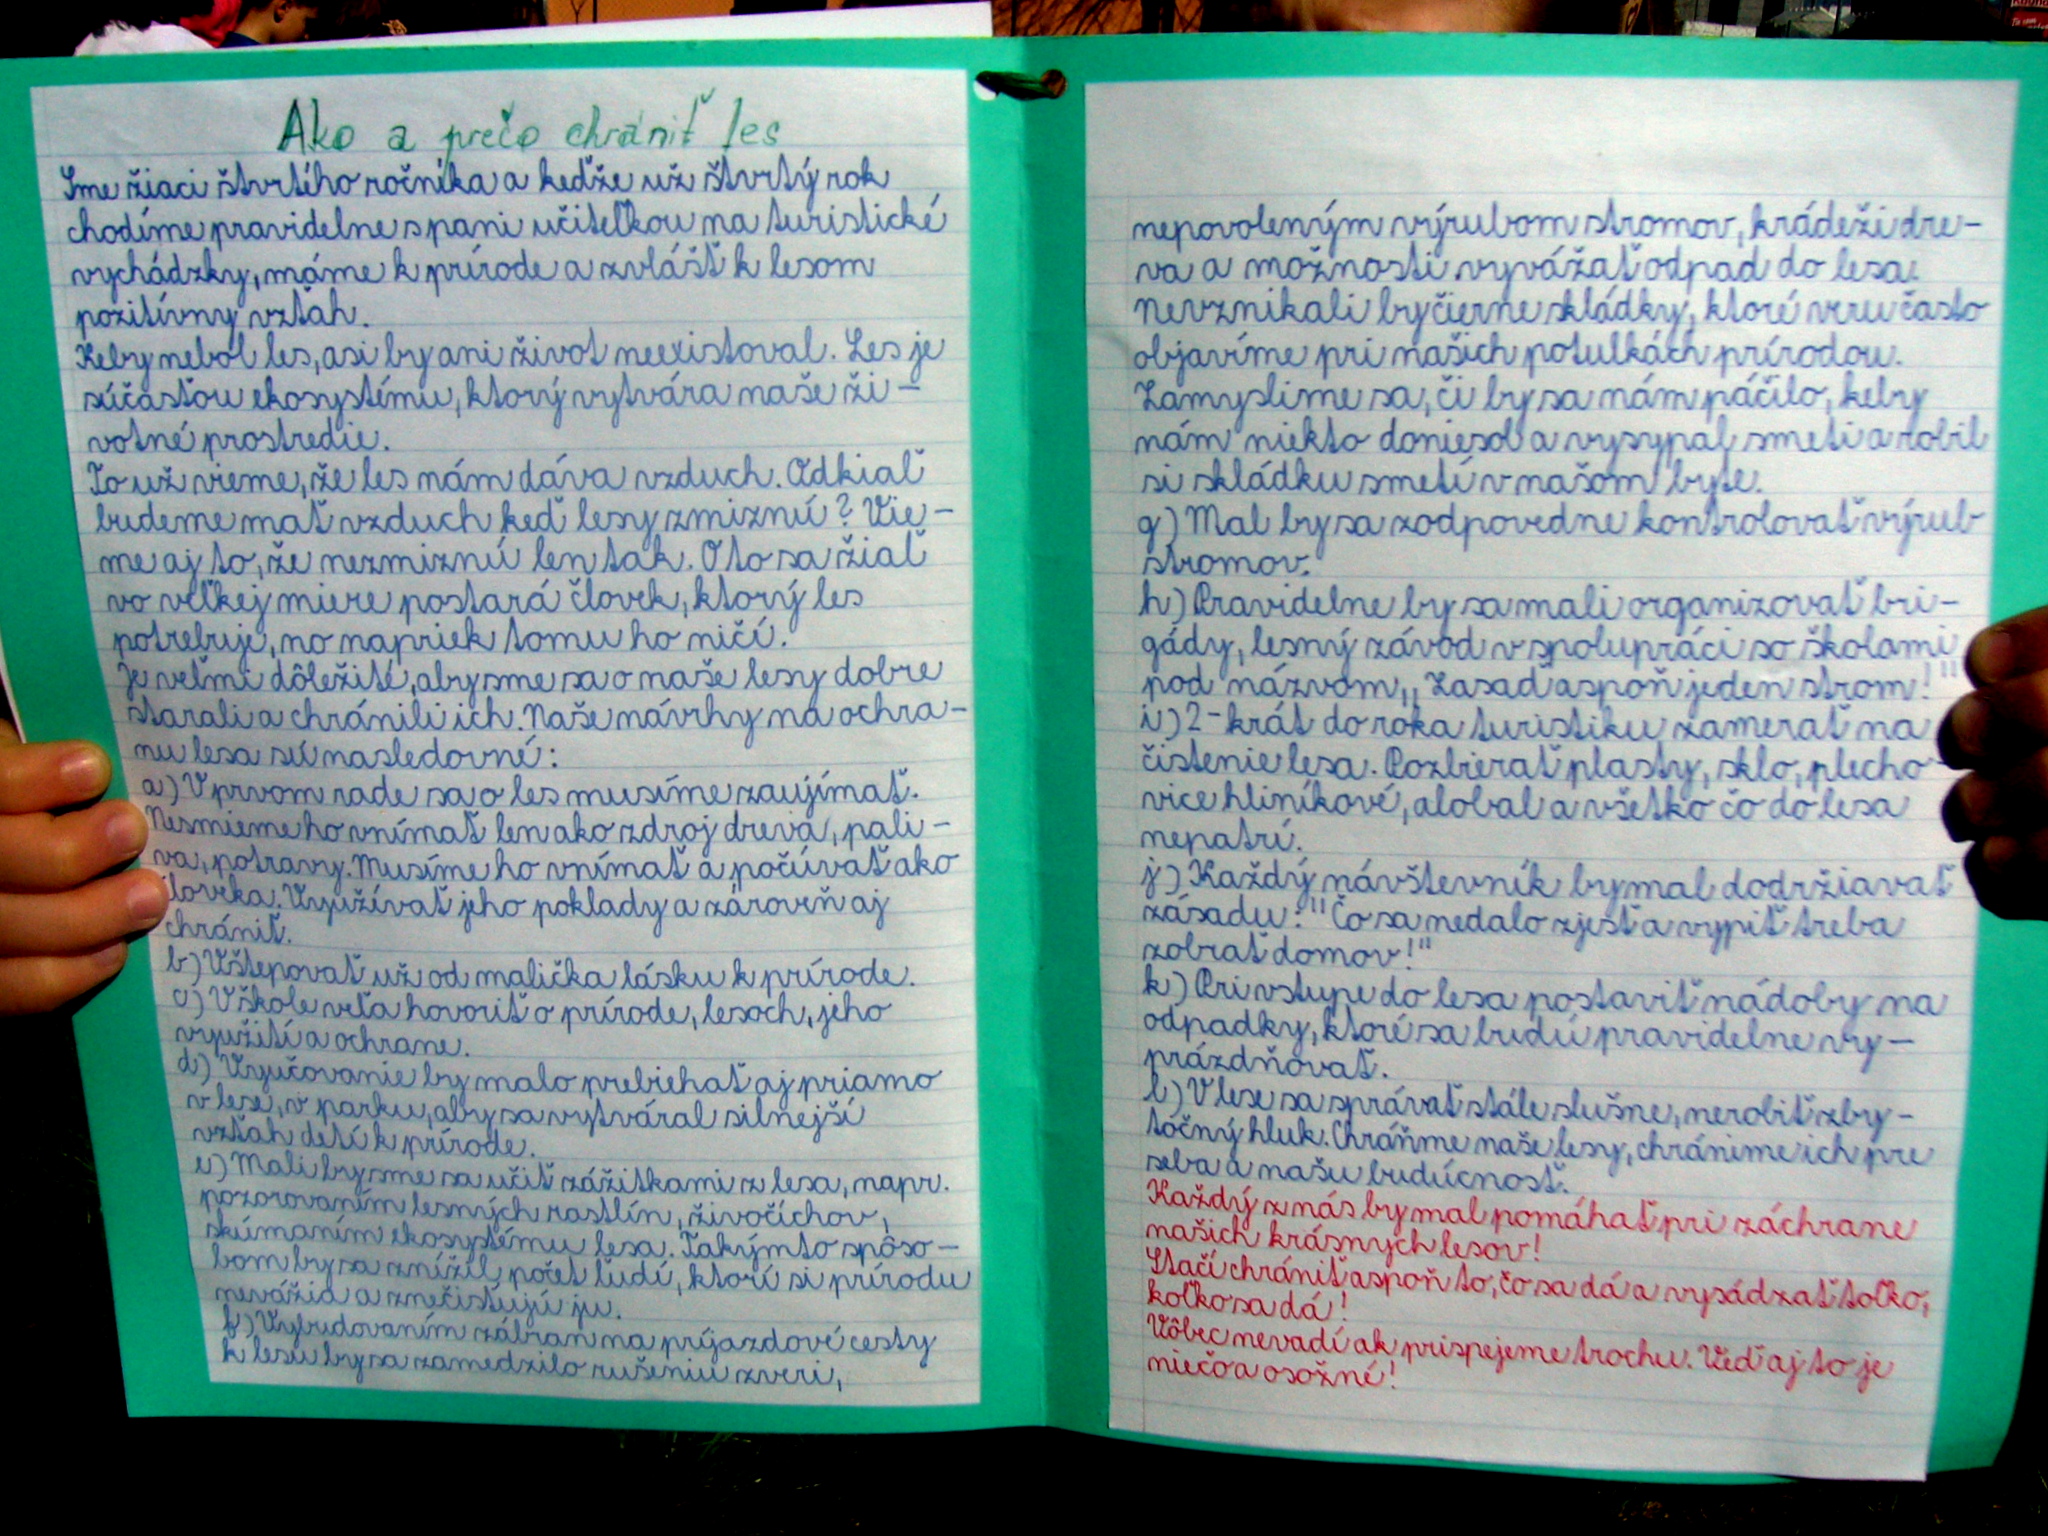 Ako a prečo chrániť les
Sme žiaci štvrtého ročníka a keďže už štvrtý rok
chodíme pravidelne s pani učiteľkou na turistické
vychádzky, máme k prírode a zvlášť k lesom
pozitívny vzťah.
Keby nebol les, asi by ani život neexistoval. Les je
súčasťou ekosystému, ktorý vytvára naše ži-
votné prostredie.
To už vieme, že les nám dáva vzduch. Odkiaľ
budeme mať vzduch keď lesy zmiznú? Vie-
me aj to, že nezmiznú len tak. O to sa žiaľ
vo veľkej miere postará človek, ktorý les
potrebuje, no napriek tomu ho ničí.
Je veľmi dôležité, aby sme sa o naše lesy dobre
starali a chránili ich. Naše návrhy na ochra-
nu lesa sú nasledovné:
a) V prvom rade sa o les musíme zaujímať.
Nesmieme ho vnímať len ako zdroj dreva, pali-
va, potravy. Musíme ho vnímať a počúvať ako
človeka. Využívať jeho poklady a zároveň aj
chrániť.
b) Vštepovať už od malička lásku k prírode.
c) V škole veľa hovoriť o prírode, lesoch, jeho
využití a ochrane.
d) Vyučovanie by malo prebiehať aj priamo
v lese, v parku, aby sa vytváral silnejší
vzťah detí k prírode.
e) Mali by sme sa učiť zážitkami z lesa, napr.
pozorovaním lesných rastlín, živočíchov,
skúmaním ekosystému lesa. Takýmto spôso-
bom by sa znížil počet ľudí, ktorí si prírodu
nevážia a znečisťujú ju.
f) Vybudovaním zábran na príjazdové cesty
k lesu by sa zamedzilo rušeniu zveri,
nepovoleným výrubom stromov, krádeži dre-
va a možnosti vyvážať odpad do lesa.
Nevznikali by čierne skládky, ktoré veru často
objavíme pri našich potulkách prírodou.
Zamyslime sa, či by sa nám páčilo, keby
nám niekto doniesol a vysypal smeti a robil
si skládku smetí v našom byte.
g) Mal by sa zodpovedne kontrolovať výrub
stromov.
h) Pravidelne by sa mali organizovať bri-
gády, lesný závod v spolupráci so školami
pod názvom „Zasaď aspoň jeden strom!"
i) 2-krát do roka turistiku zamerať na
čistenie lesa. Pozbierať plasty, sklo, plecho-
vice hliníkové, alobal a všetko čo do lesa
nepatrí.
j) Každý návštevník by mal dodržiavať
zásadu: "Čo sa nedalo zjesť a vypiť treba
zobrať domov!"
k) Pri vstupe do lesa postaviť nádoby na
odpadky, ktoré sa budú pravidelne vy-
prázdňovať.
l) V lese sa správať stále slušne, nerobiť zby-
točný hluk. Chráňme naše lesy, chránime ich pre
seba a našu budúcnosť.
Každý z nás by mal pomáhať pri záchrane
našich krásnych lesov!
Stačí chrániť aspoň to, čo sa dá a vysádzať toľko,
koľko sa dá!
Vôbec nevadí ak prispejeme trochu. Veď aj to je
niečo a osožné!